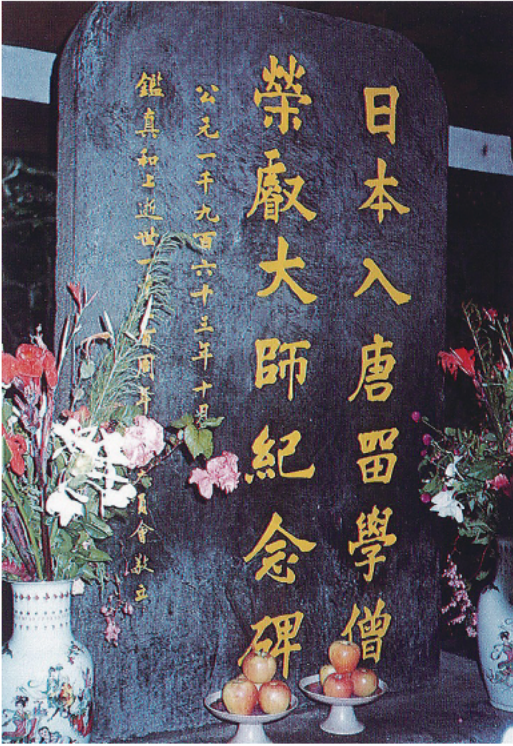 日本入唐畱學僧
榮叡大師紀念碑
公元一千九百六十三年十月
鑑真和上逝世一百周年員會敬立